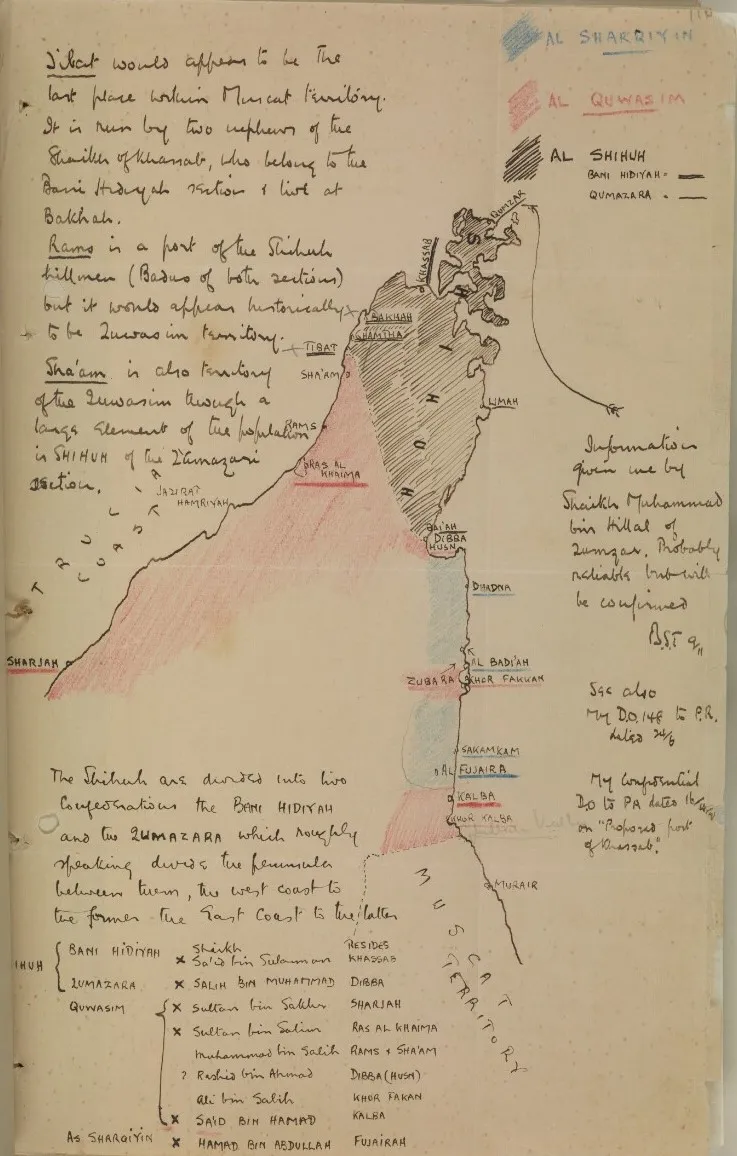 AL SHARQIYIN
AL QUWASIM
AL SHIHUH
BANI HIDIYAH =
QUMAZARA =
Tibat would appear to be the
last place within Muscat territory.
It is run by two nephews of the
Shaikh of Khassab, who belong to the
Bani Hidiyah section & live at
Bakhah.
Rams is a port of the Shihuh
hillmen (Badus of both sections)
but it would appear historically
to be Quwasim territory.
Sha'am is also territory
of the Quwasim though a
large element of the population
is SHIHUH of the Qamazari
section.
QUMZAR
KHASSAB
BAKHAH
GHAMTHA
TIBAT
SHA'AM
LIMAH
RAMS
RAS AL
KHAIMA
JAZIRAT
HAMRIYAH
TRUCIAL
COAST
SHIHUH
BAI'AH
DIBBA
HUSN
DHADNA
SHARJAH
AL BADI'AH
ZUBARA
KHOR FAKKAN
SAKAMKAM
AL FUJAIRA
KALBA
KHOR KALBA
MURAIR
MUSCAT
TERRITORY
Information
given me by
Shaikh Muhammad
bin Hillal of
Qumzar. Probably
reliable but will
be confirmed
See also
My D.O. 148 to P.R.
dated 24/6
My confidential
DO to PA dated
on "Proposed port
of Khassab."
The Shihuh are divided into two
Confederations the BANI HIDIYAH
and the QUMAZARA which roughly
speaking divide the peninsula
between them, the west coast to
the former the East Coast to the latter
Shaikh RESIDES
IHUH
BANI HIDIYAH × Sa'id bin Sulaiman KHASSAB
QUMAZARA × SALIH BIN MUHAMMAD DIBBA
QUWASIM × Sultan bin Sakhr SHARJAH
× Sultan bin Salim RAS AL KHAIMA
Muhammad bin Salih RAMS & SHA'AM
? Rashid bin Ahmad DIBBA (HUSN)
Ali bin Salih KHOR FAKAN
× SA'ID BIN HAMAD KALBA
AS SHARQIYIN × HAMAD BIN ABDULLAH FUJAIRAH